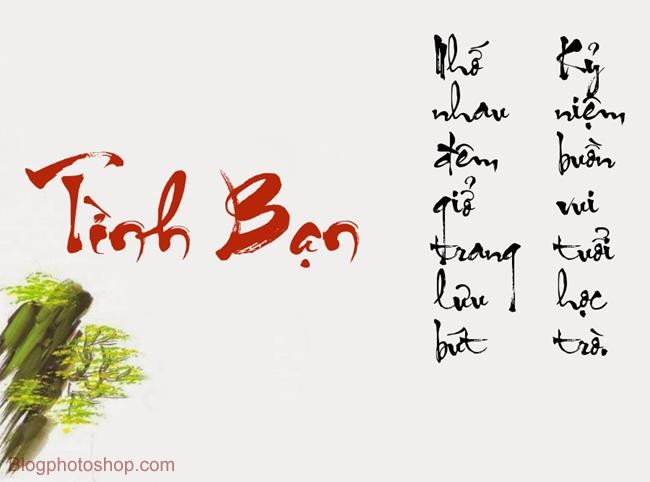 Tình Bạn
Nhớ
nhau
đêm
giở
trang
lưu
bút
Kỷ
niệm
buồn
vui
tuổi
học
trò.
Blogphotoshop.com